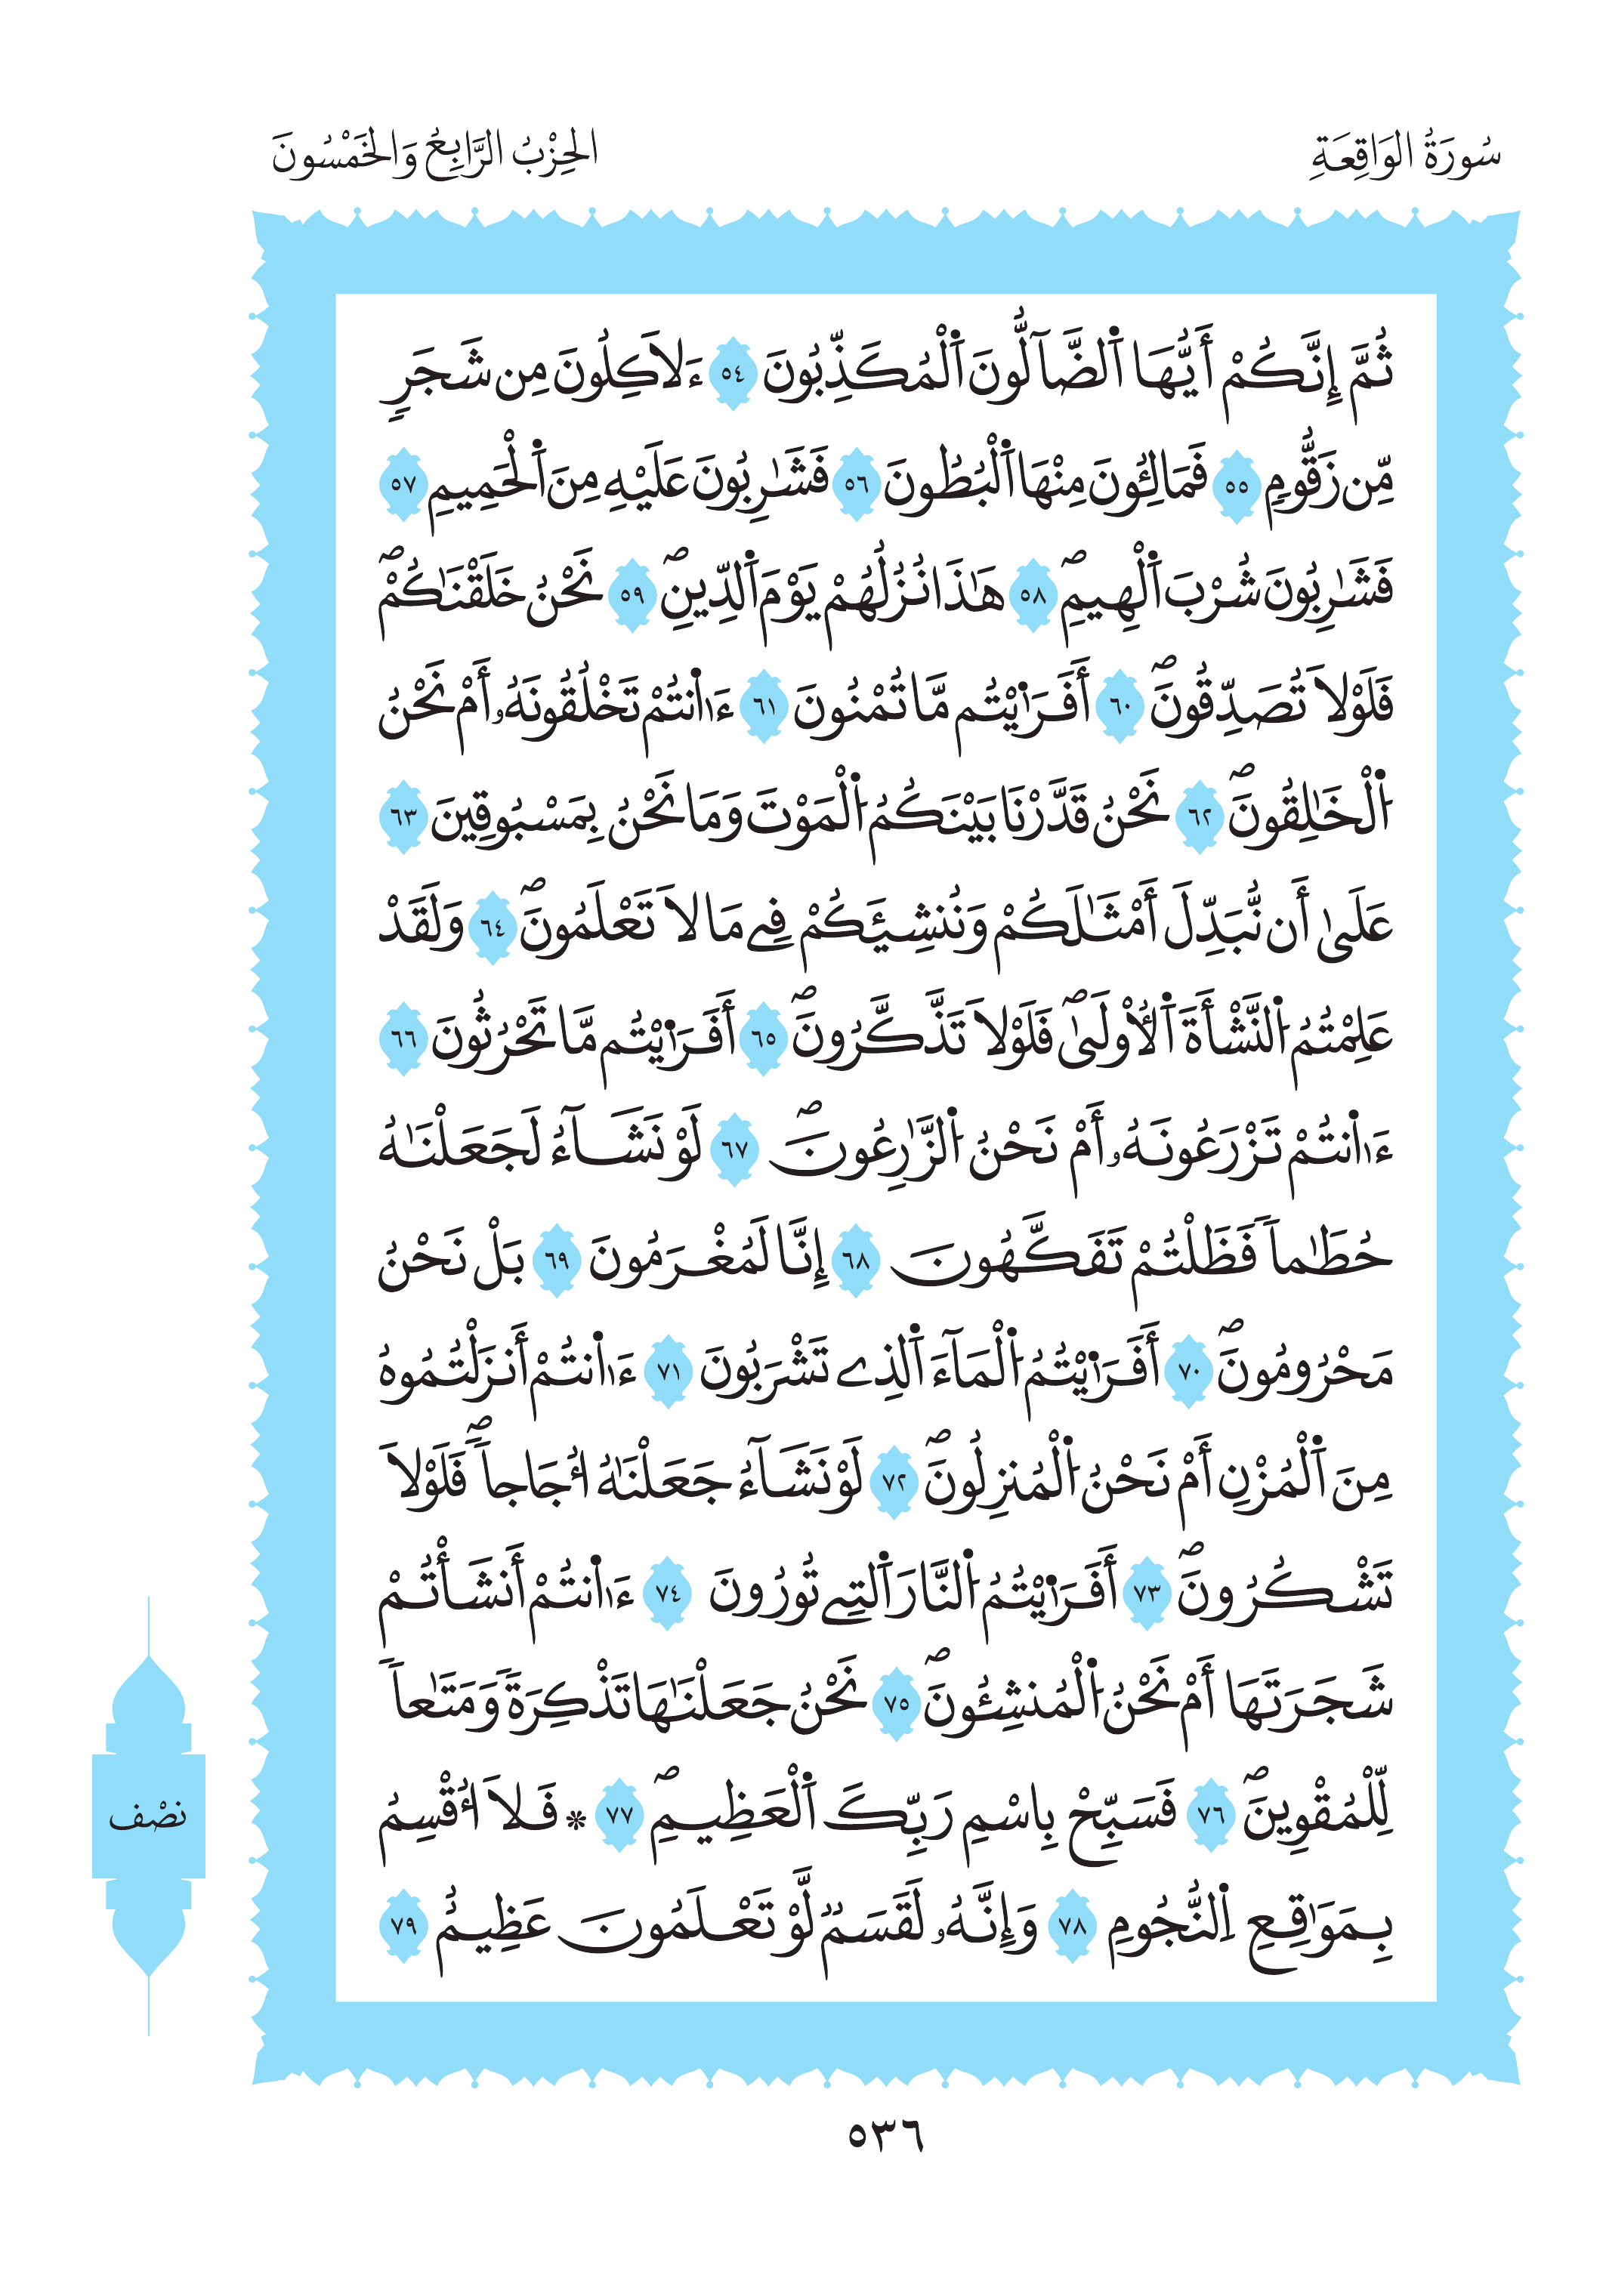 سُورَةُ الوَاقِعَةِ
الحِزْبُ الرَّابِعُ وَالخَمْسُونَ
ثُمَّ إِنَّكُمْ أَيُّهَا اَ۬لضَّآلُّونَ اَ۬لْمُكَذِّبُونَ ٥٤ ءَلَاكِلُونَ مِن شَجَرٖ
مِّن زَقُّومٖ ٥٥ فَمَالِـُٔونَ مِنْهَا اَ۬لْبُطُونَ ٥٦ فَشَٰرِبُونَ عَلَيْهِ مِنَ اَ۬لْحَمِيمِ ٥٧
فَشَٰرِبُونَ شُرْبَ اَ۬لْهِيمِۖ ٥٨ هَٰذَا نُزُلُهُمْ يَوْمَ اَ۬لدِّينِۖ ٥٩ نَحْنُ خَلَقْنَٰكُمْۖ
فَلَوْلَا تُصَدِّقُونَۖ ٦٠ أَفَرَٰٓيْتُم مَّا تُمْنُونَ ٦١ ءَا۬نتُمْ تَخْلُقُونَهُۥ أَمْ نَحْنُ
اُ۬لْخَٰلِقُونَۖ ٦٢ نَحْنُ قَدَّرْنَا بَيْنَكُمُ اُ۬لْمَوْتَ وَمَا نَحْنُ بِمَسْبُوقِينَ ٦٣
عَلَىٰ أَن نُّبَدِّلَ أَمْثَٰلَكُمْ وَنُنشِئَكُمْ فِے مَا لَا تَعْلَمُونَۖ ٦٤ وَلَقَدْ
عَلِمْتُمُ اُ۬لنَّشْأَةَ اَ۬لُاولَىٰۖ فَلَوْلَا تَذَّكَّرُونَۖ ٦٥ أَفَرَٰٓيْتُم مَّا تَحْرُثُونَ ٦٦
ءَا۬نتُمْ تَزْرَعُونَهُۥ أَمْ نَحْنُ اُ۬لزَّٰرِعُونَۖ ٦٧ لَوْ نَشَآءُ لَجَعَلْنَٰهُ
حُطَٰماٗ فَظَلْتُمْ تَفَكَّهُونَ ٦٨ إِنَّا لَمُغْرَمُونَ ٦٩ بَلْ نَحْنُ
مَحْرُومُونَۖ ٧٠ أَفَرَٰٓيْتُمُ اُ۬لْمَآءَ اَ۬لذِے تَشْرَبُونَ ٧١ ءَا۬نتُمْ أَنزَلْتُمُوهُ
مِنَ اَ۬لْمُزْنِ أَمْ نَحْنُ اُ۬لْمُنزِلُونَۖ ٧٢ لَوْ نَشَآءُ جَعَلْنَٰهُ أُجَاجاٗۖ فَلَوْلَا
تَشْكُرُونَۖ ٧٣ أَفَرَٰٓيْتُمُ اُ۬لنَّارَ اَ۬لتِے تُورُونَ ٧٤ ءَا۬نتُمْ أَنشَأْتُمْ
شَجَرَتَهَا أَمْ نَحْنُ اُ۬لْمُنشِـُٔونَۖ ٧٥ نَحْنُ جَعَلْنَٰهَا تَذْكِرَةٗ وَمَتَٰعاٗ
لِّلْمُقْوِينَۖ ٧٦ فَسَبِّحْ بِاسْمِ رَبِّكَ اَ۬لْعَظِيمِۖ ٧٧ * فَلَا أُقْسِمُ
بِمَوَٰقِعِ اِ۬لنُّجُومِ ٧٨ وَإِنَّهُۥ لَقَسَمٞ لَّوْ تَعْلَمُونَ عَظِيمٌ ٧٩
نصْف
٥٣٦